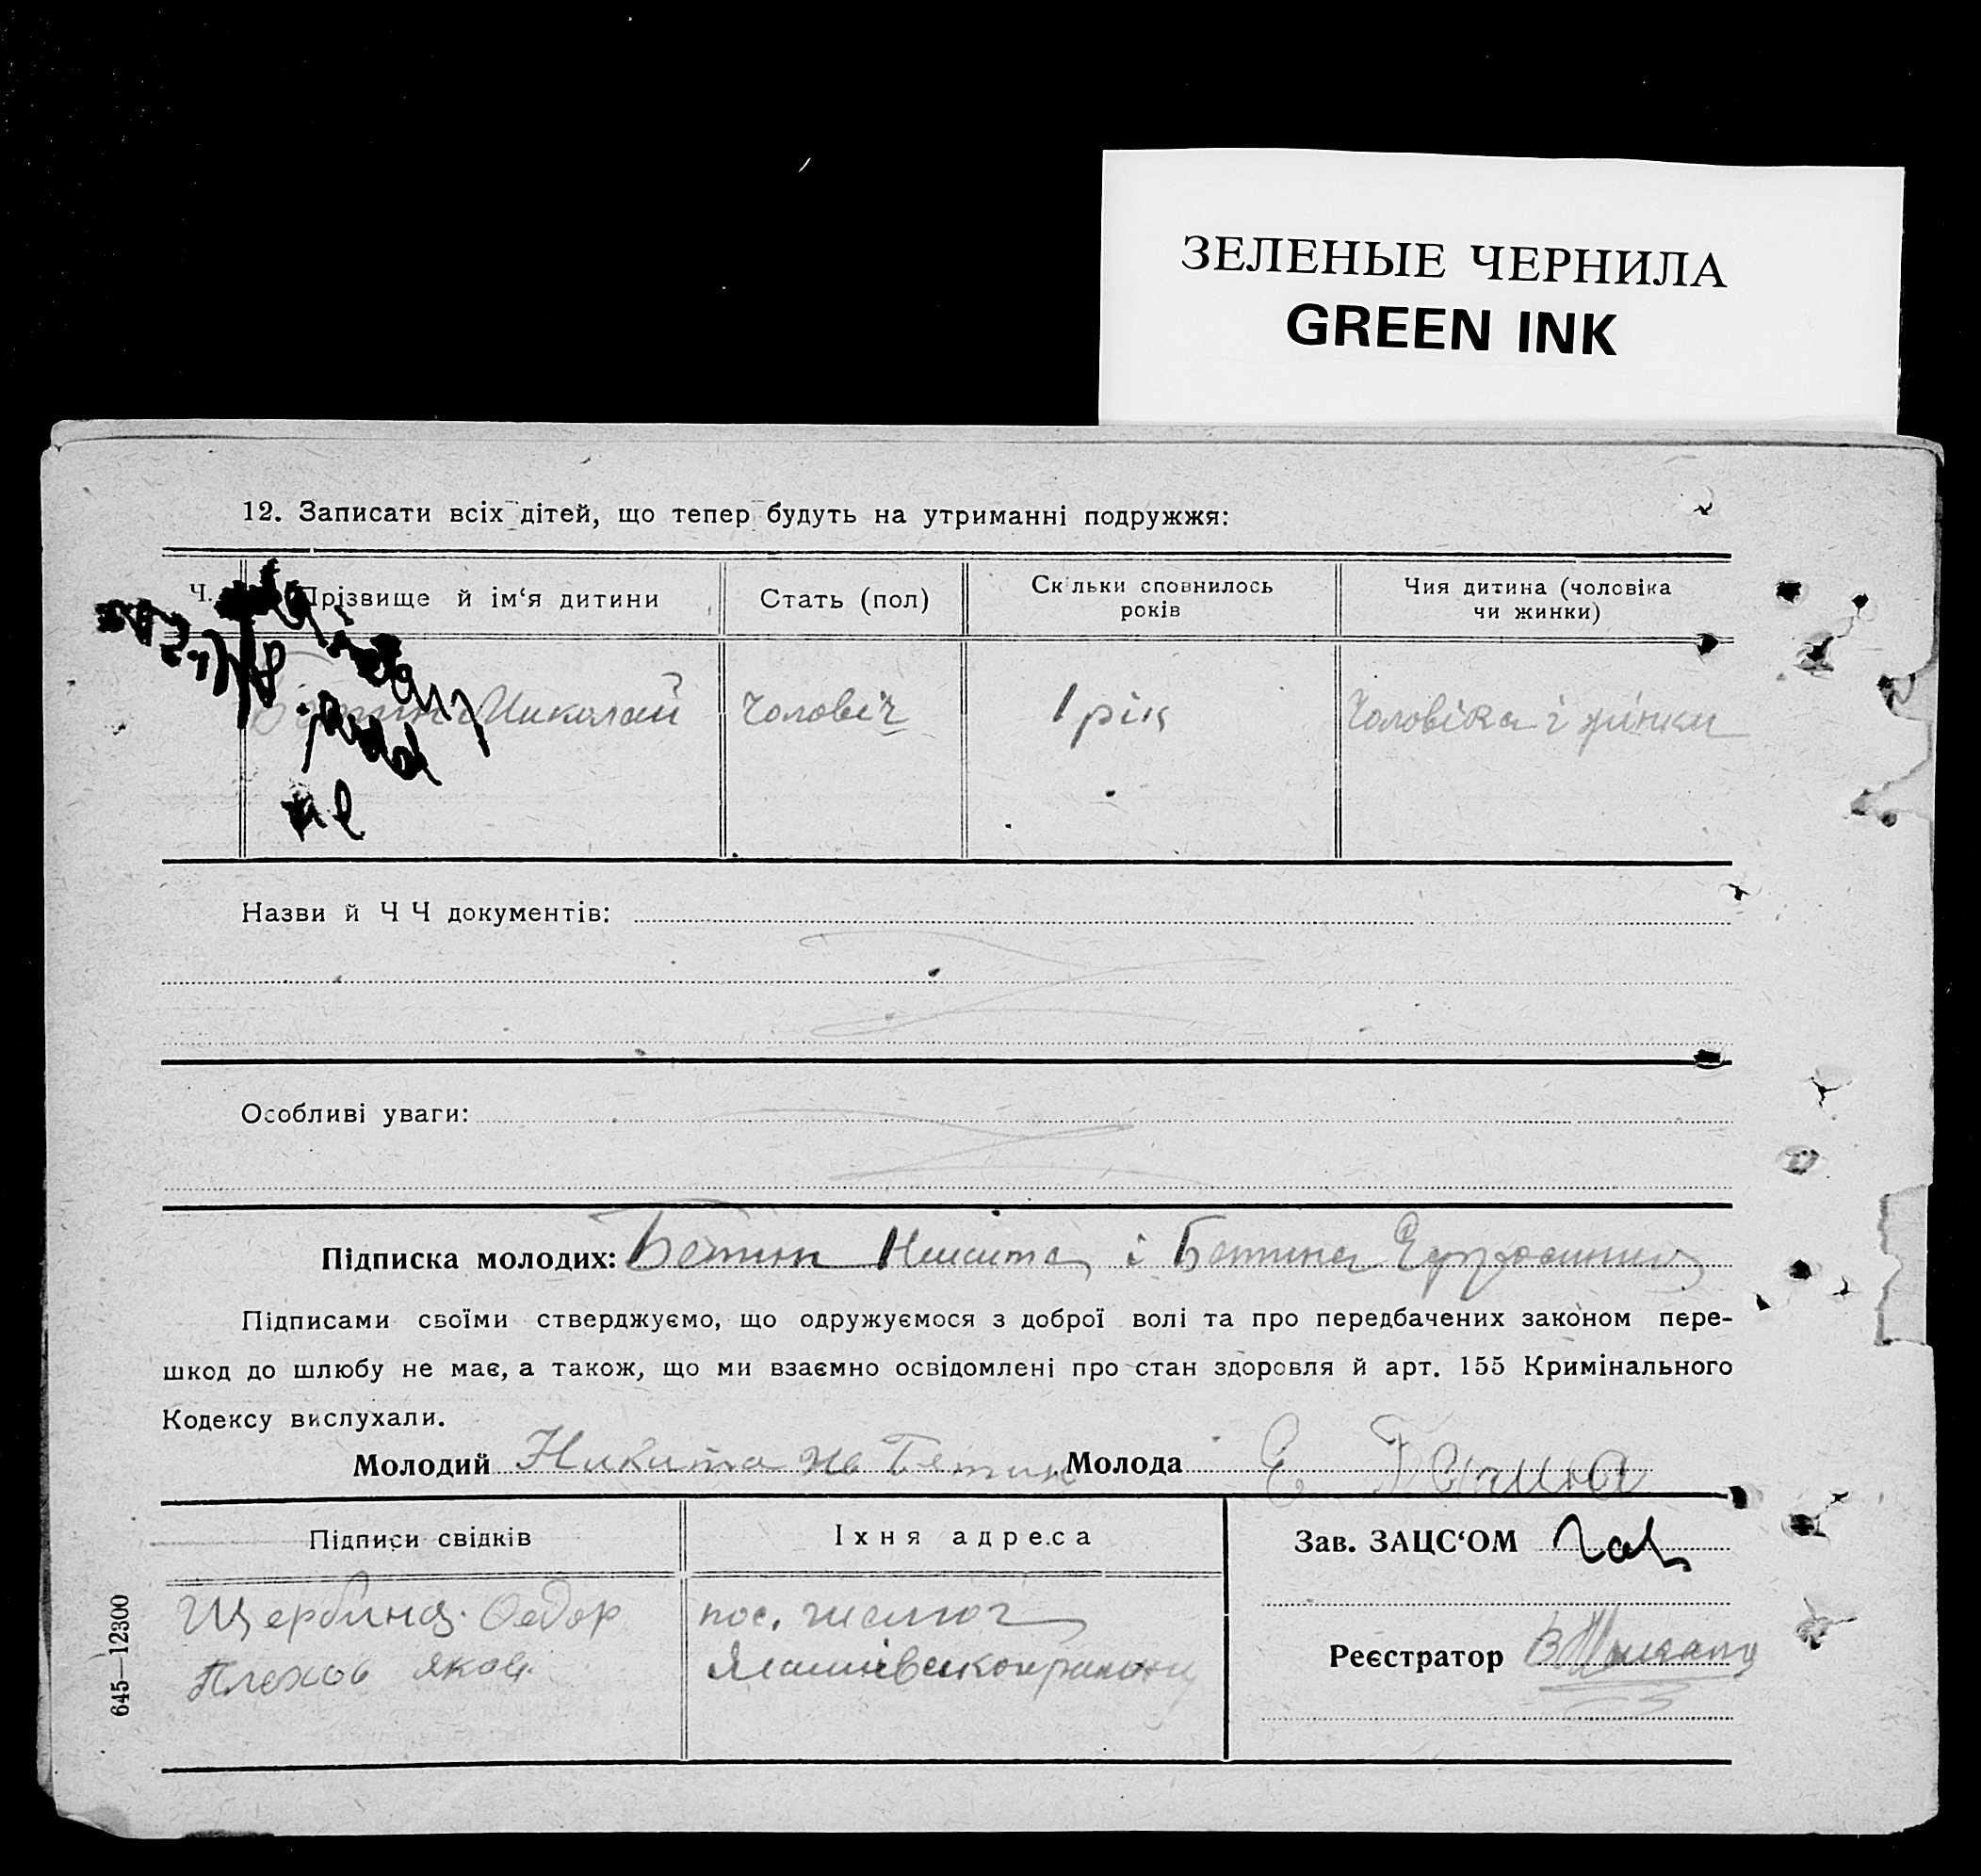 ЗЕЛЕНЫЕ ЧЕРНИЛА
GREEN INK
12. Записати всіх дітей, що тепер будуть на утриманні подружжя:
Ч.
Прізвище й ім‘я дитини
Стать (пол)
Скільки сповнилось
років
Чия дитина (чоловіка
чи жинки)
Николай
Чоловіч
1 рік
Чоловіка і жінки
не
Назви й Ч Ч документів:
Особливі уваги:
Підписка молодих: Бетин Никита і Бетина
Підписами своїми стверджуємо, що одружуємося з доброї волі та про передбачених законом пере-
шкод до шлюбу не має, а також, що ми взаємно освідомлені про стан здоровля й арт. 155 Кримінального
Кодексу вислухали.
Молодий Никита Бетин Молода Е.
Підписи свідків
Їхня адреса
Зав. ЗАЦС‘ОМ
Щербина Федор
пос.
Плехов Яков
Реєстратор
645—12300